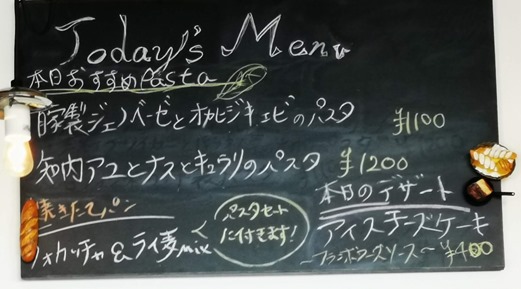 Today's Menu
本日おすすめpasta
自家製ジェノベーゼとオカヒジキ、エビのパスタ ¥1100
知内アユとナスとキュウリのパスタ ¥1200
焼きたてパン
フォカッチャ & ライ麦mix
パスタセット
に付きます!
本日のデザート
アイスチーズケーキ
~フランボワーズソース~ ¥400